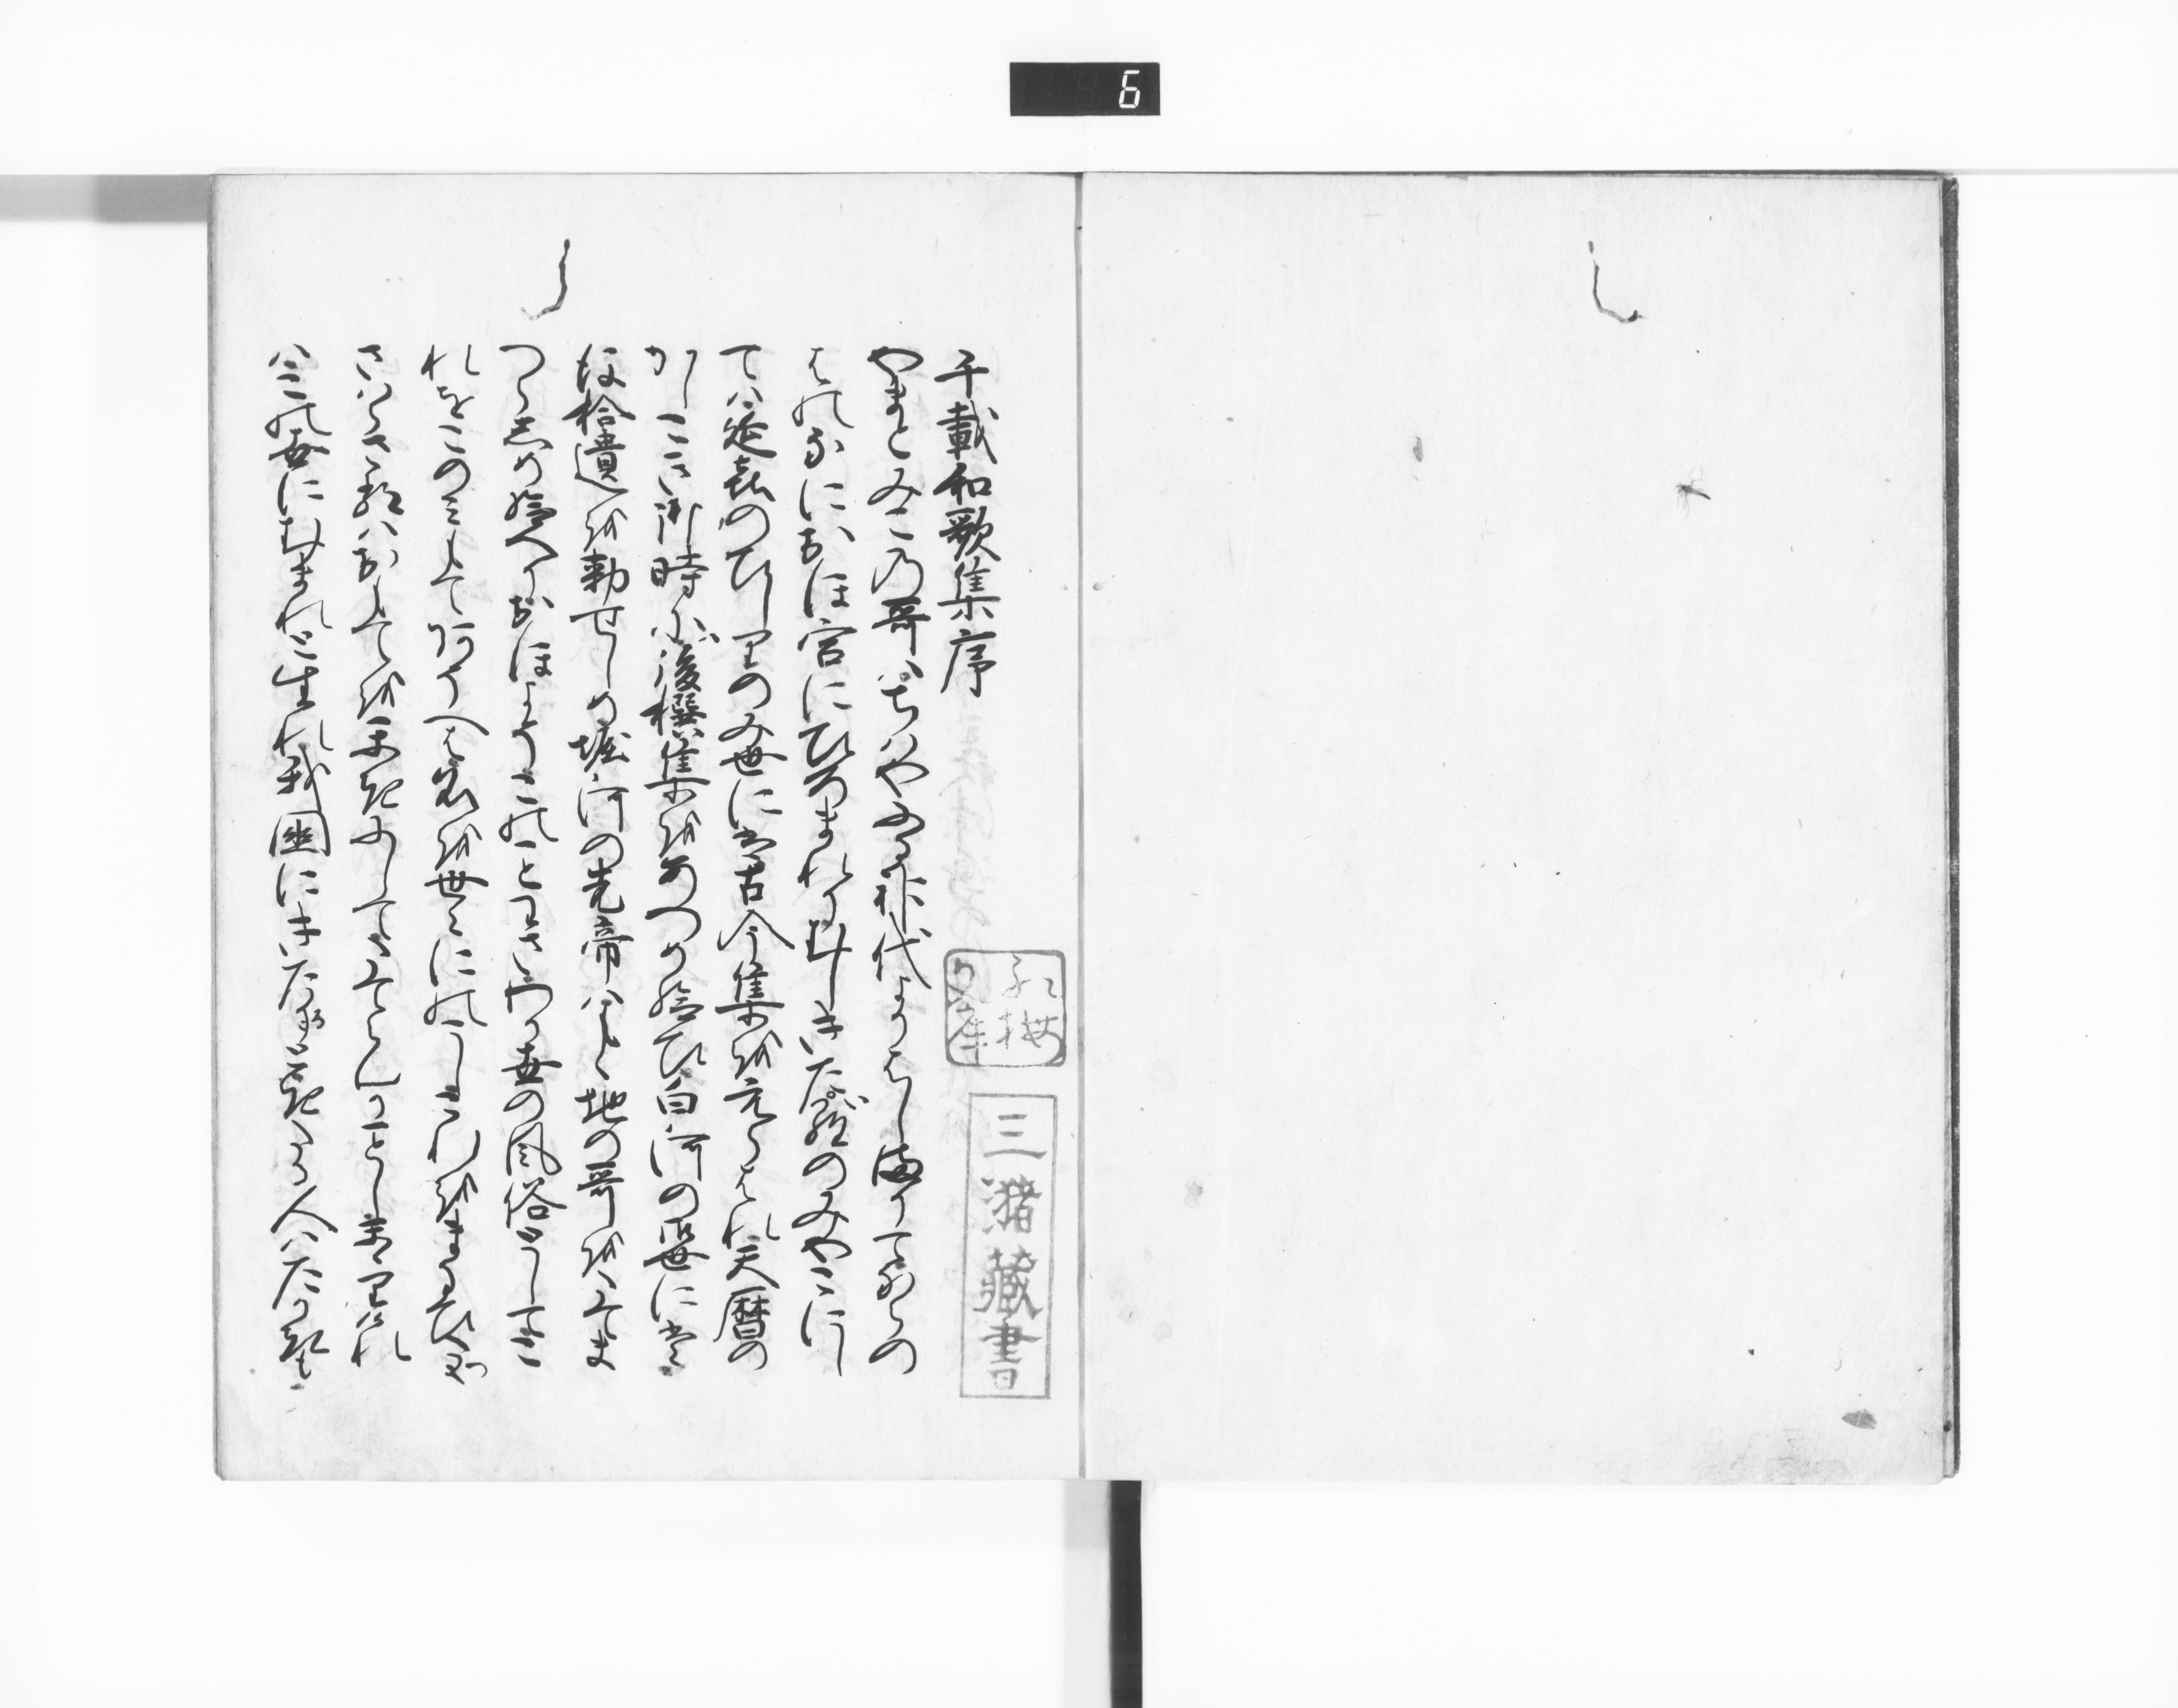 6
千載和歌集序
やまとみことの哥はちはやふる神代よりはしまりてならの
はのなにおほ宮にひろまれりたましきたひらのみやこにし
ては延喜のひしりのみ世には古今集をえらはれ天暦の
かしこき御時には後撰集をあつめ給ひ白河の御世には
後拾遺を勅せしめ堀河の先帝はもゝ地の哥をたてま
つらしめ給へりおほよそこのことわさわか世の風俗として
れをこのみもてあそへは名を世々にのこしこれをまなひたつ
さはらさるはおもてをかきにしてたてらんかことしかゝりけれ
はこの世にむまれと生れ我国にきたりときたる人はたかきも
三瀦蔵書